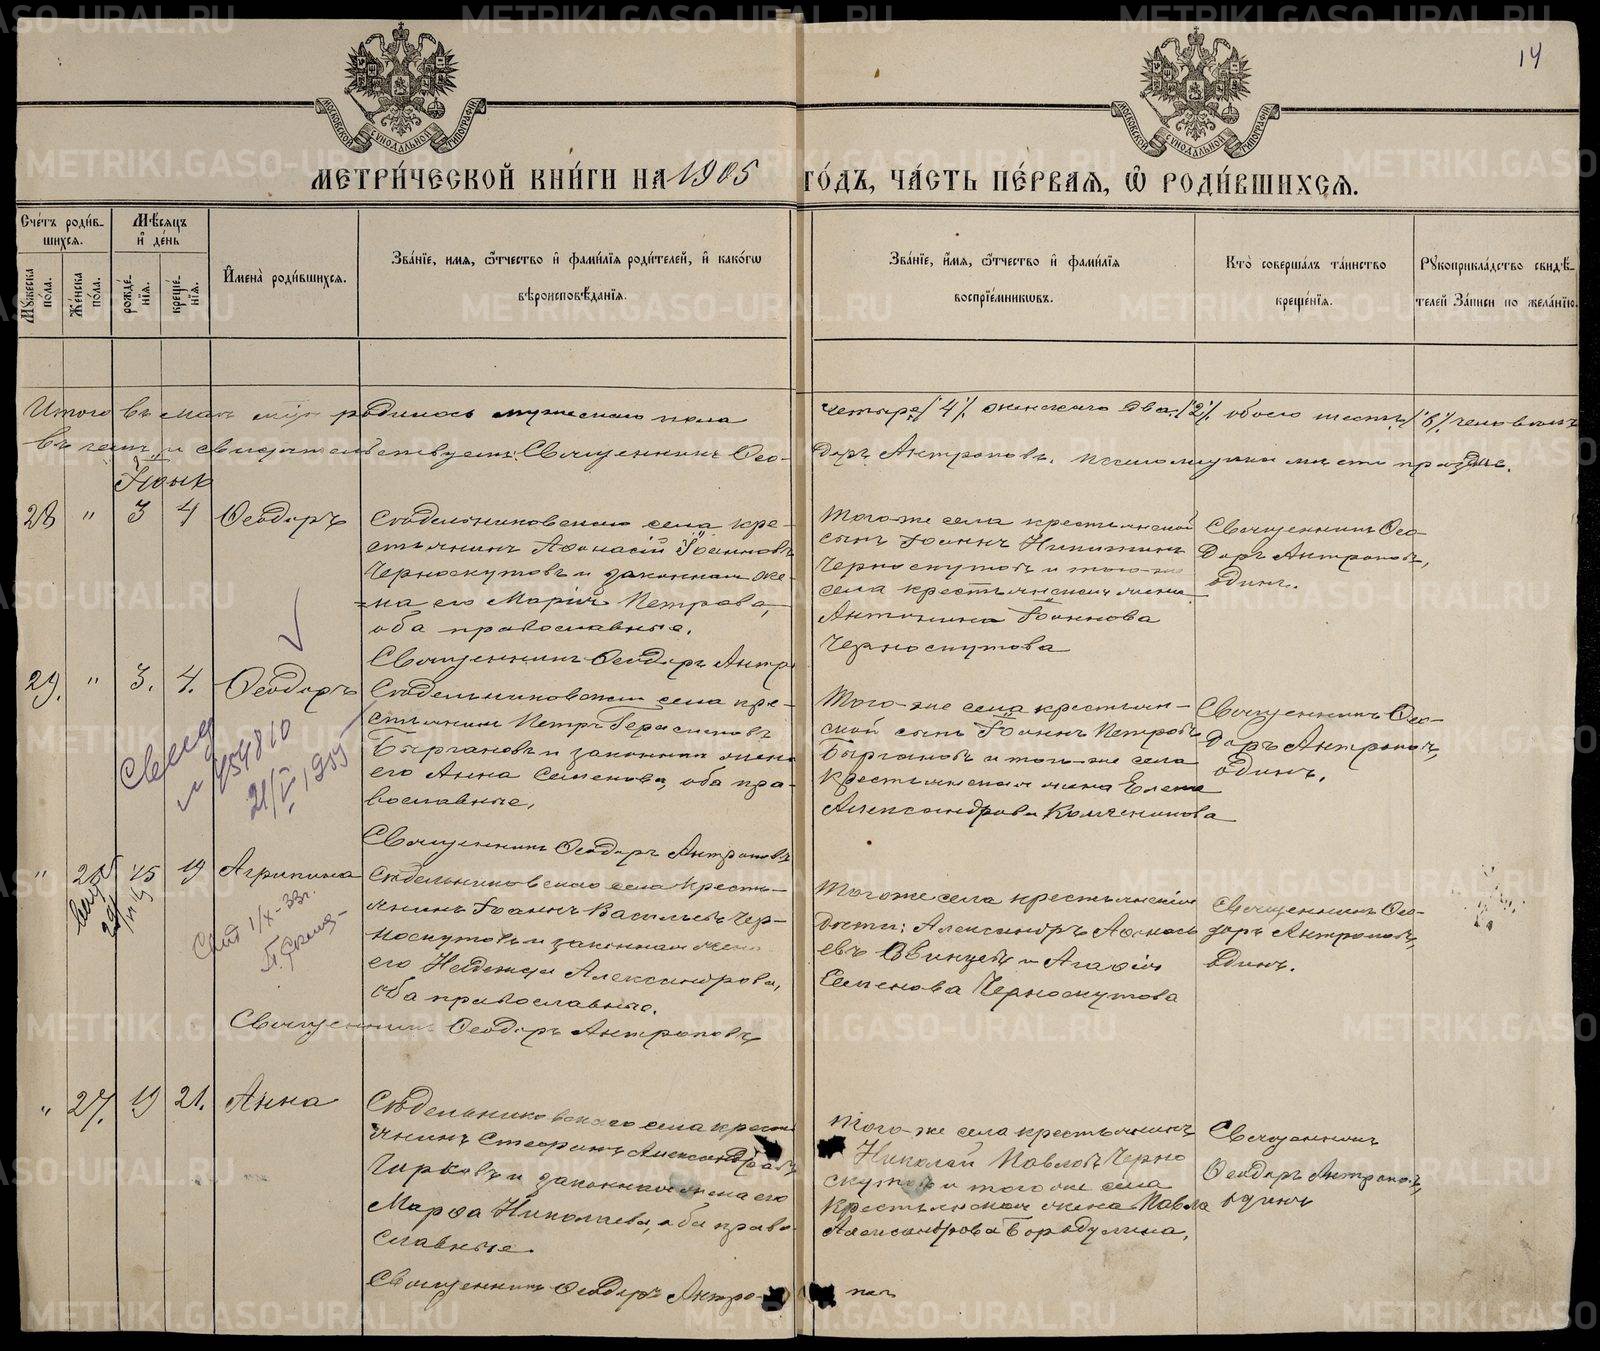 14
МОСКОВСКОЙ СУНОДАЛЬНОЙ ТИПОГРАФІИ
МОСКОВСКОЙ СУНОДАЛЬНОЙ ТИПОГРАФІИ
МЕТРИ́ЧЕСКОЙ КНИ́ГИ НА 1905 ГО́ДЪ, ЧА́СТЬ ПЕ́РВАЯ, Ѽ РОДИ́ВШИХСЯ.
Сче́тъ роди́в-
шихся.
Мѣ́сяцъ
и҆ де́нь
Мꙋжеска по́ла.
Же́нска по́ла.
рожде́-
нїя.
креще́-
нїя.
И҆мена̀ роди́вшихся.
Зва́нїе, имя, ѻ҆́тчество и҆ фами́лїя роди́телей, и҆ како́гѡ
вѣроисповѣ́данїя.
Зва́нїе, и҆́мя, ѻ҆́тчество и҆ фами́лїя
воспрїе́мниковъ.
Кто̀ соверша́лъ та́инство
креще́нїя.
Рꙋкоприкла́дство свидѣ́-
телей за́писи по жела́нїю.
Итого въ маѣ родилось мужескаго пола
четыре /4/, женскаго два /2/, обоего шесть /6/ человѣкъ
въ чемъ и свидѣтельствуетъ: Священникъ Ѳео-
доръ Антроповъ.
Іюнь
28 " 3 4 Ѳеодоръ
Сѣдельниковскаго села кре-
стьянинъ Аѳанасій Іоанновъ
Черноскутовъ и законная же-
на его Марія Петрова,
оба православные.
Священникъ Ѳеодоръ Антро
Того-же села крестьянской
сынъ Іоаннъ Никитинъ
Черноскутовъ и того-же
села крестьянская жена
Антонина Іоаннова
Черноскутова
Священникъ Ѳео-
доръ Антроповъ,
одинъ.
29. " 3. 4. Ѳеодоръ
Сѣдельниковскаго села кре-
стьянинъ Петръ Герасимовъ
и законная жена
его Анна Семенова, оба пра-
вославные.
Священникъ Ѳеодоръ Антроповъ
Того-же села крестьян-
ской сынъ Іоаннъ Петровъ
и того-же села
крестьянская жена Елена
Александрова
Священникъ Ѳео-
доръ Антроповъ,
одинъ.
454810
21/V 1955
" 26 15 19 Агрипина
1/X-33г.
Сѣдельниковскаго села кресть-
янинъ Іоаннъ Васильевъ Чер-
носкутовъ и законная жена
его Надежда Александрова,
оба православные.
Священникъ Ѳеодоръ Антроповъ
Того-же села крестьянскія
дѣти: Александръ Аѳанась
евъ и Агаѳія
Семенова Черноскутова
Священникъ Ѳео-
доръ Антроповъ,
одинъ.
" 27. 19 21. Анна
Сѣдельниковскаго села кресть
янинъ Стефанъ Александровъ
и законная жена его
Марѳа Николаева, оба право-
славные.
Священникъ Ѳеодоръ Антро-
повъ
Того-же села крестьянинъ
Николай Павловъ Черно
скутовъ и того же села
крестьянская жена Павла
Александрова Бородулина.
Священникъ
Ѳеодоръ Антроповъ,
одинъ
METRIKI.GASO-URAL.RU